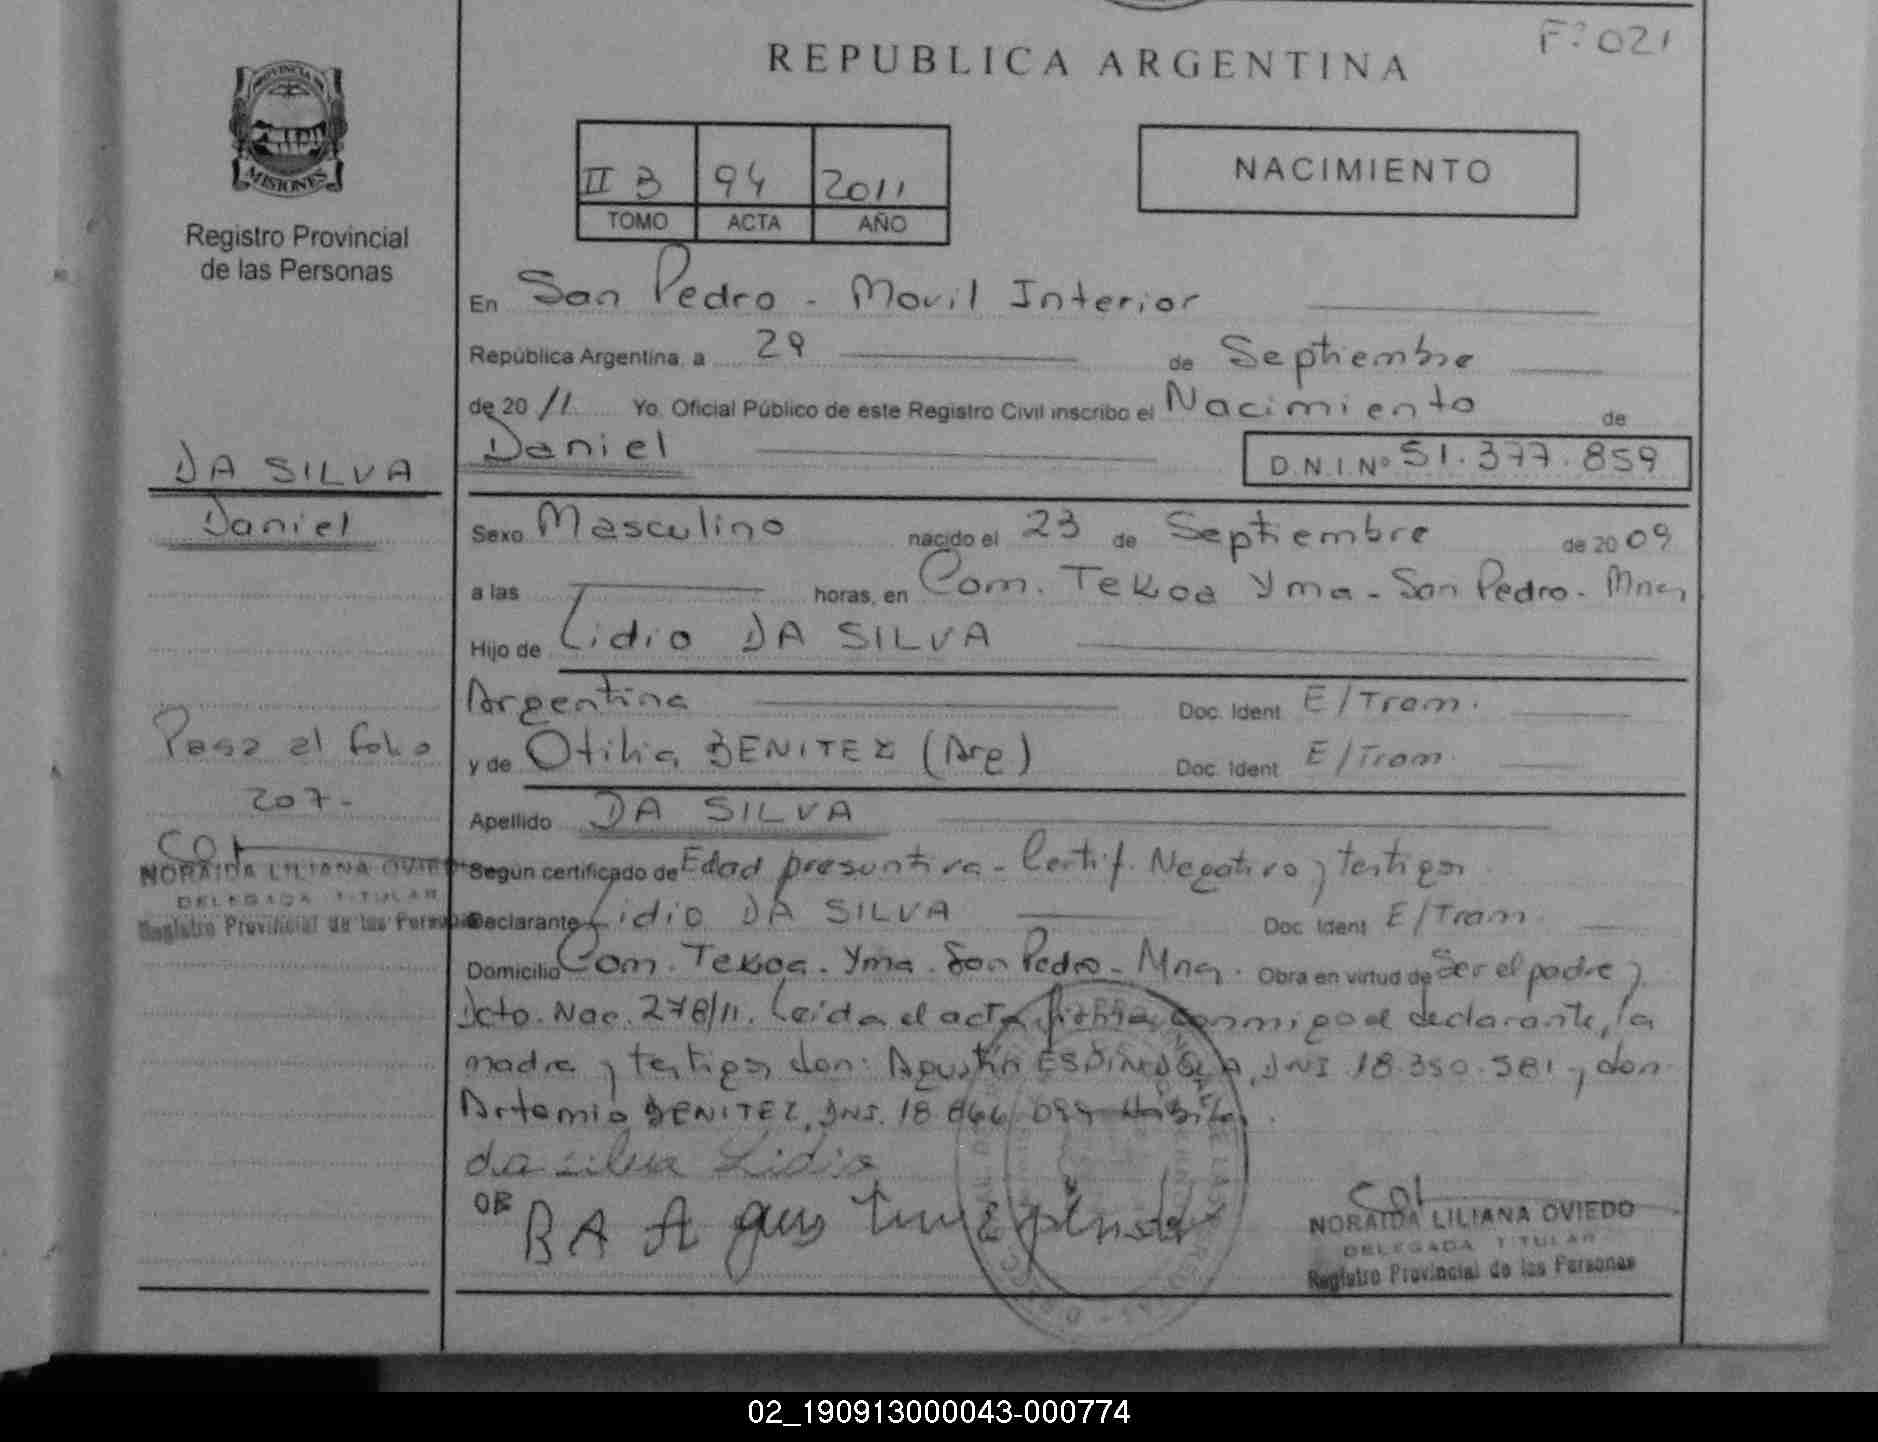 F° 021
REPUBLICA ARGENTINA
PROVINCIA DE
MISIONES
Registro Provincial
de las Personas
II B 94 2011
TOMO ACTA AÑO
NACIMIENTO
En San Pedro - Movil Interior
República Argentina, a 29 de Septiembre
de 20 11 Yo, Oficial Público de este Registro Civil inscribo el Nacimiento de
Daniel D.N.I.N° 51.377.859
DA SILVA
Daniel
Sexo Masculino nacido el 23 de Septiembre de 20 09
a las horas, en Com. Tekoa Yma - San Pedro - Mnes
Hijo de Lidio DA SILVA
Argentina Doc. Ident E/Tram.
y de Otilia BENITEZ (Arg) Doc. Ident E/Tram.
Apellido DA SILVA
Pasa al folio
207.-
NORAIDA LILIANA OVIEDO
DELEGADA TITULAR
Registro Provincial de las Personas
Según certificado de Edad presuntiva - Certif. Negativo y testigos
Declarante Lidio DA SILVA Doc. Ident E/Tram.
Domicilio Com. Tekoa. Yma. San Pedro - Mnes. Obra en virtud de Ser el padre y
Dcto. Nac. 278/11. Leida el acta firma conmigo el declarante, la
madre y testigos don: Agustin ESPINDOLA, DNI 18.350.581 y don
Artemio BENITEZ, DNI. 18.866.099
da silva Lidio
OB BA Agustin Espindola
NORAIDA LILIANA OVIEDO
DELEGADA TITULAR
Registro Provincial de las Personas
02_190913000043-000774